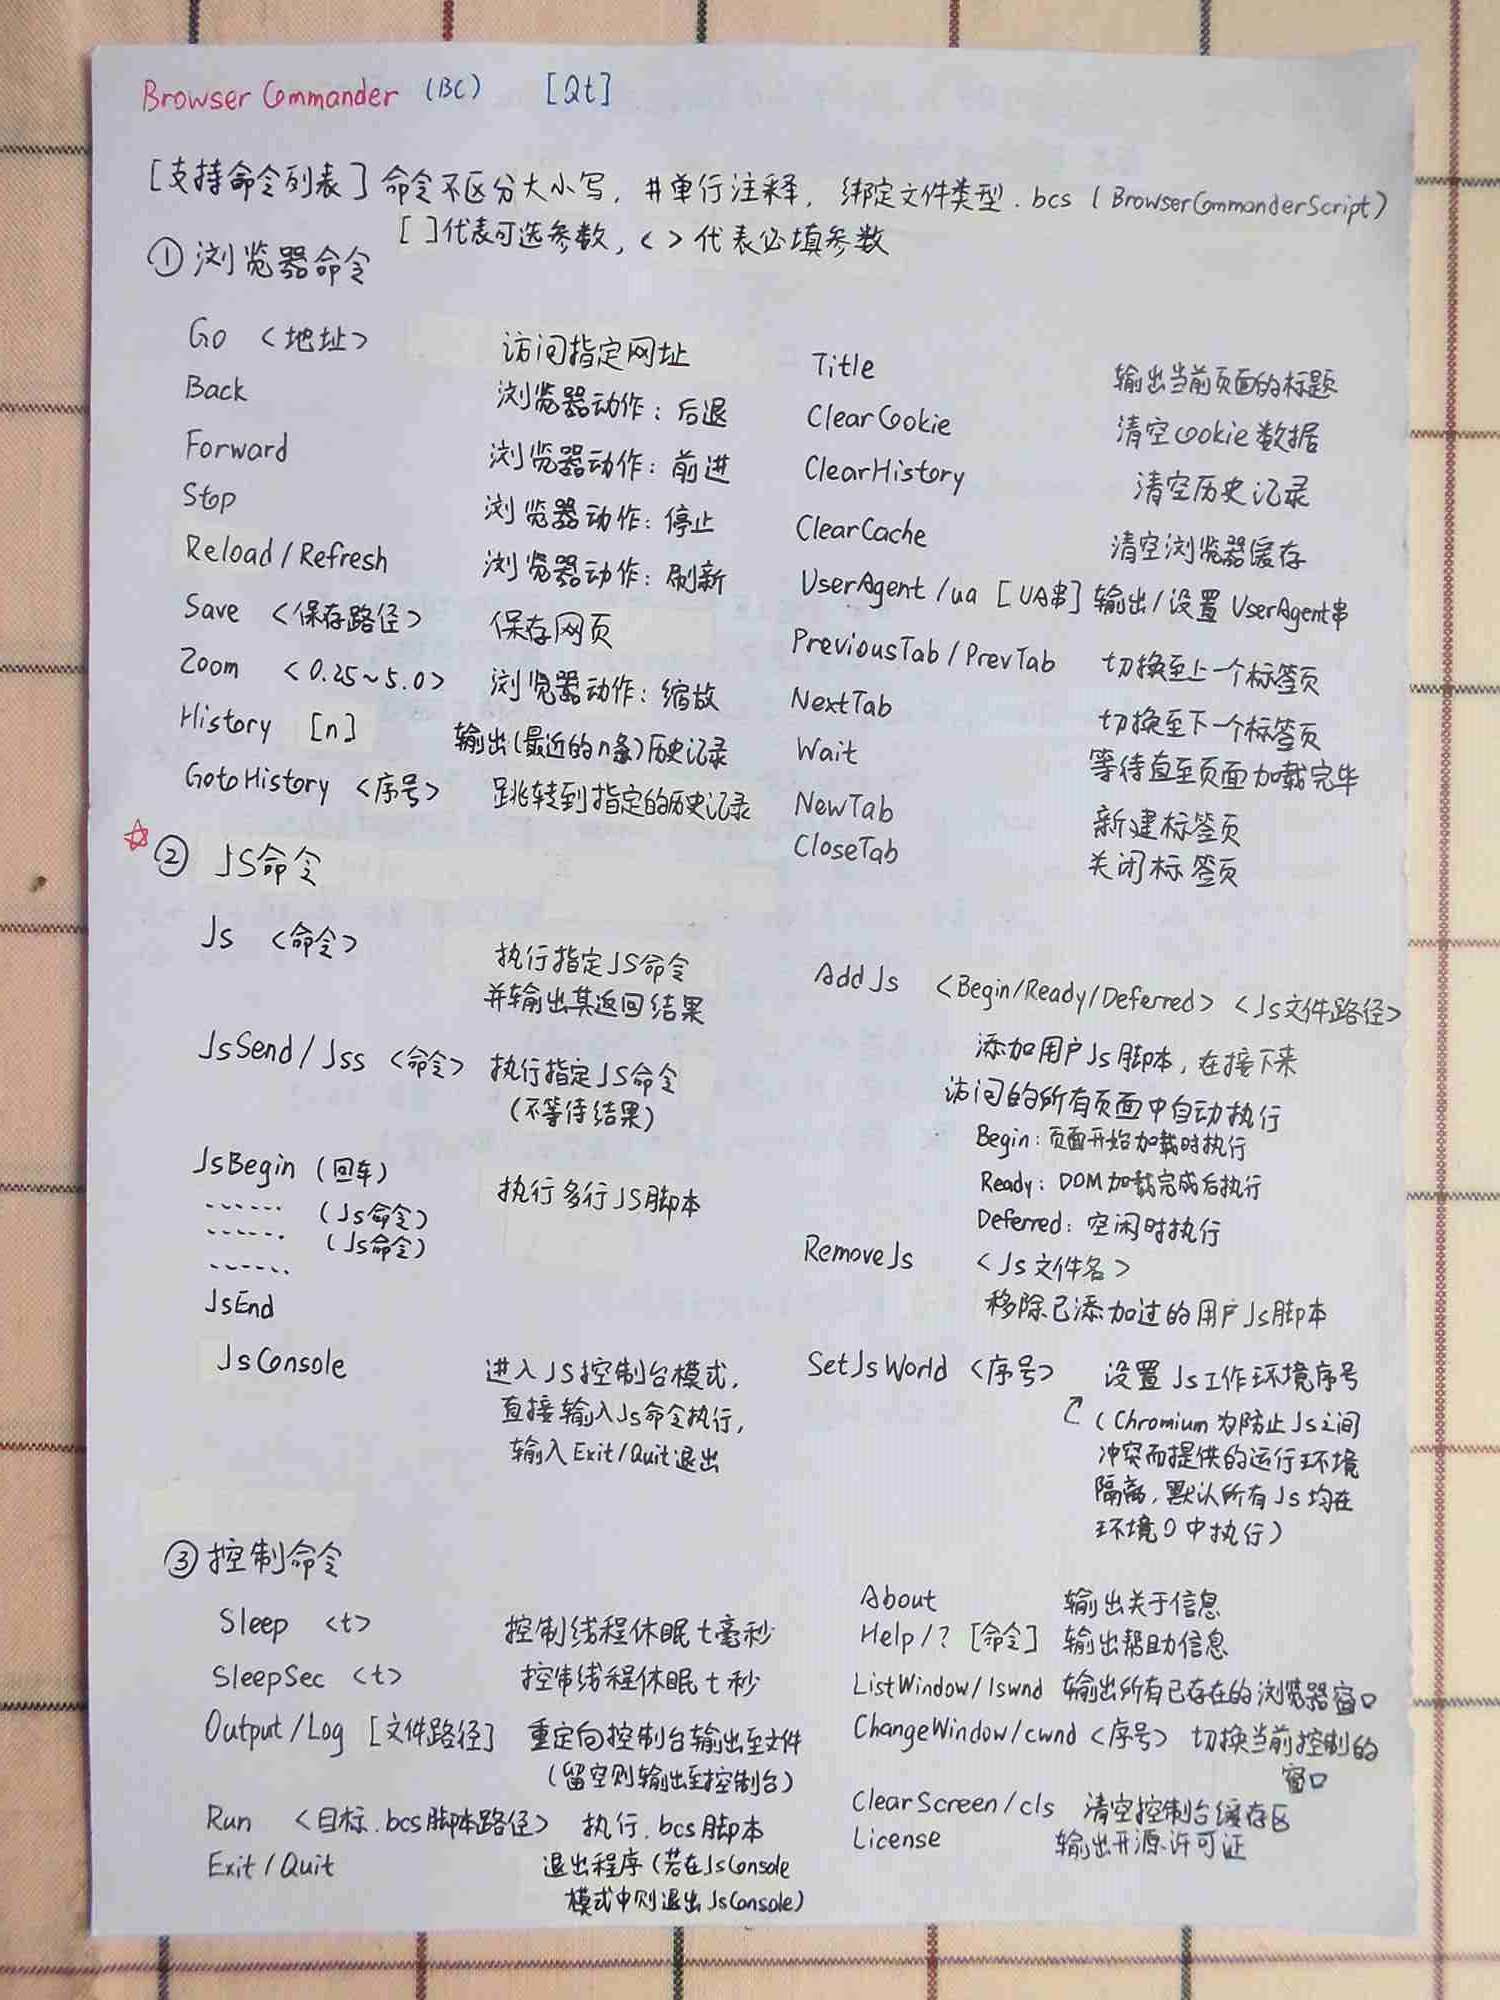 Browser Commander (BC) [Qt]
[支持命令列表] 命令不区分大小写, #单行注释, 绑定文件类型.bcs (BrowserCommanderScript)
[ ]代表可选参数, < >代表必填参数
① 浏览器命令
Go <地址> 访问指定网址
Back 浏览器动作: 后退
Forward 浏览器动作: 前进
Stop 浏览器动作: 停止
Reload/Refresh 浏览器动作: 刷新
Save <保存路径> 保存网页
Zoom <0.25~5.0> 浏览器动作: 缩放
History [n] 输出(最近的n条)历史记录
GotoHistory <序号> 跳转到指定的历史记录
Title 输出当前页面的标题
ClearCookie 清空cookie数据
ClearHistory 清空历史记录
ClearCache 清空浏览器缓存
UserAgent/ua [UA串] 输出/设置 UserAgent串
PreviousTab/PrevTab 切换至上一个标签页
NextTab 切换至下一个标签页
Wait 等待直至页面加载完毕
NewTab 新建标签页
CloseTab 关闭标签页
② JS命令
Js <命令> 执行指定JS命令
并输出其返回结果
JsSend/Jss <命令> 执行指定JS命令
(不等待结果)
JsBegin (回车) 执行多行JS脚本
...... (Js命令)
...... (Js命令)
......
JsEnd
JsConsole 进入JS控制台模式,
直接输入Js命令执行,
输入Exit/Quit退出
AddJs <Begin/Ready/Deferred> <Js文件路径>
添加用户Js脚本, 在接下来
访问的所有页面中自动执行
Begin: 页面开始加载时执行
Ready: DOM加载完成后执行
Deferred: 空闲时执行
RemoveJs <Js文件名>
移除已添加过的用户Js脚本
SetJsWorld <序号> 设置Js工作环境序号
(Chromium为防止Js之间
冲突而提供的运行环境
隔离, 默认所有Js均在
环境0中执行)
③ 控制命令
Sleep <t> 控制线程休眠t毫秒
SleepSec <t> 控制线程休眠t秒
Output/Log [文件路径] 重定向控制台输出至文件
(留空则输出至控制台)
Run <目标.bcs脚本路径> 执行.bcs脚本
Exit/Quit 退出程序(若在JsConsole
模式中则退出JsConsole)
About 输出关于信息
Help/? [命令] 输出帮助信息
ListWindow/lswnd 输出所有已存在的浏览器窗口
ChangeWindow/cwnd <序号> 切换当前控制的
窗口
ClearScreen/cls 清空控制台缓存区
License 输出开源许可证